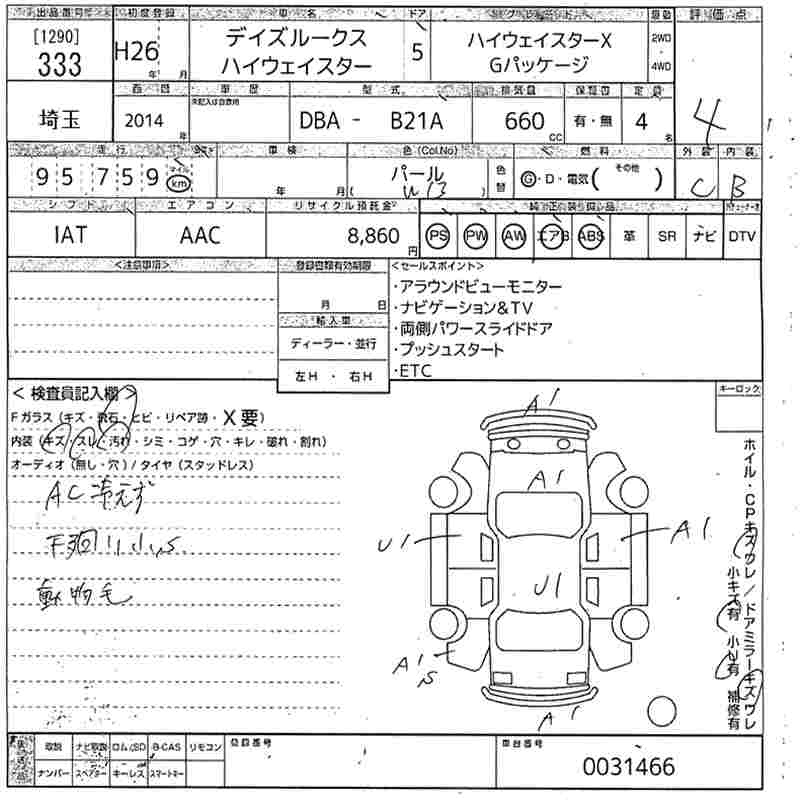 出品番号 初度登録 車名 ドア グレード 駆動 評価点
[1290]
333
H26
年 月
デイズルークス
ハイウェイスター
5
ハイウェイスターX
Gパッケージ
2WD
4WD
4
西暦 車歴 型式 排気量 保証書 定員
埼玉
2014
年
未記入は自家用
DBA - B21A
660
CC
有・無
4
名
走行 車検 色(Col.No) 燃料 外装 内装
95759
マイル
km
年 月(
パール
W13
)
色替
G・D・電気(
その他
)
C
B
シフト エアコン リサイクル預託金 純正装備品
IAT
AAC
8,860
円
PS PW AW エアB ABS 革 SR ナビ DTV
<注意事項>
登録書類有効期限
月 日
輸入車
ディーラー・並行
左H ・ 右H
<セールスポイント>
・アラウンドビューモニター
・ナビゲーション&TV
・両側パワースライドドア
・プッシュスタート
・ETC
< 検査員記入欄 >
Fガラス(キズ・飛石・ヒビ・リペア跡・X要)
内装(キズ・スレ・汚れ・シミ・コゲ・穴・キレ・破れ・割れ)
オーディオ(無し・穴)/タイヤ(スタッドレス)
AC冷えず
下廻りサビ小
動物毛
キーロック
A1
A1
U1
A1
U1
A1
S
A1
ホイル・CPキズウレ/ドアミラーキズウレ
小キズ有 小U有 補修有
後送品
取説 ナビ取説 ロム/SD B-CAS リモコン
ナンバー スペアキー キーレス スマートキー
登録番号
車台番号
0031466